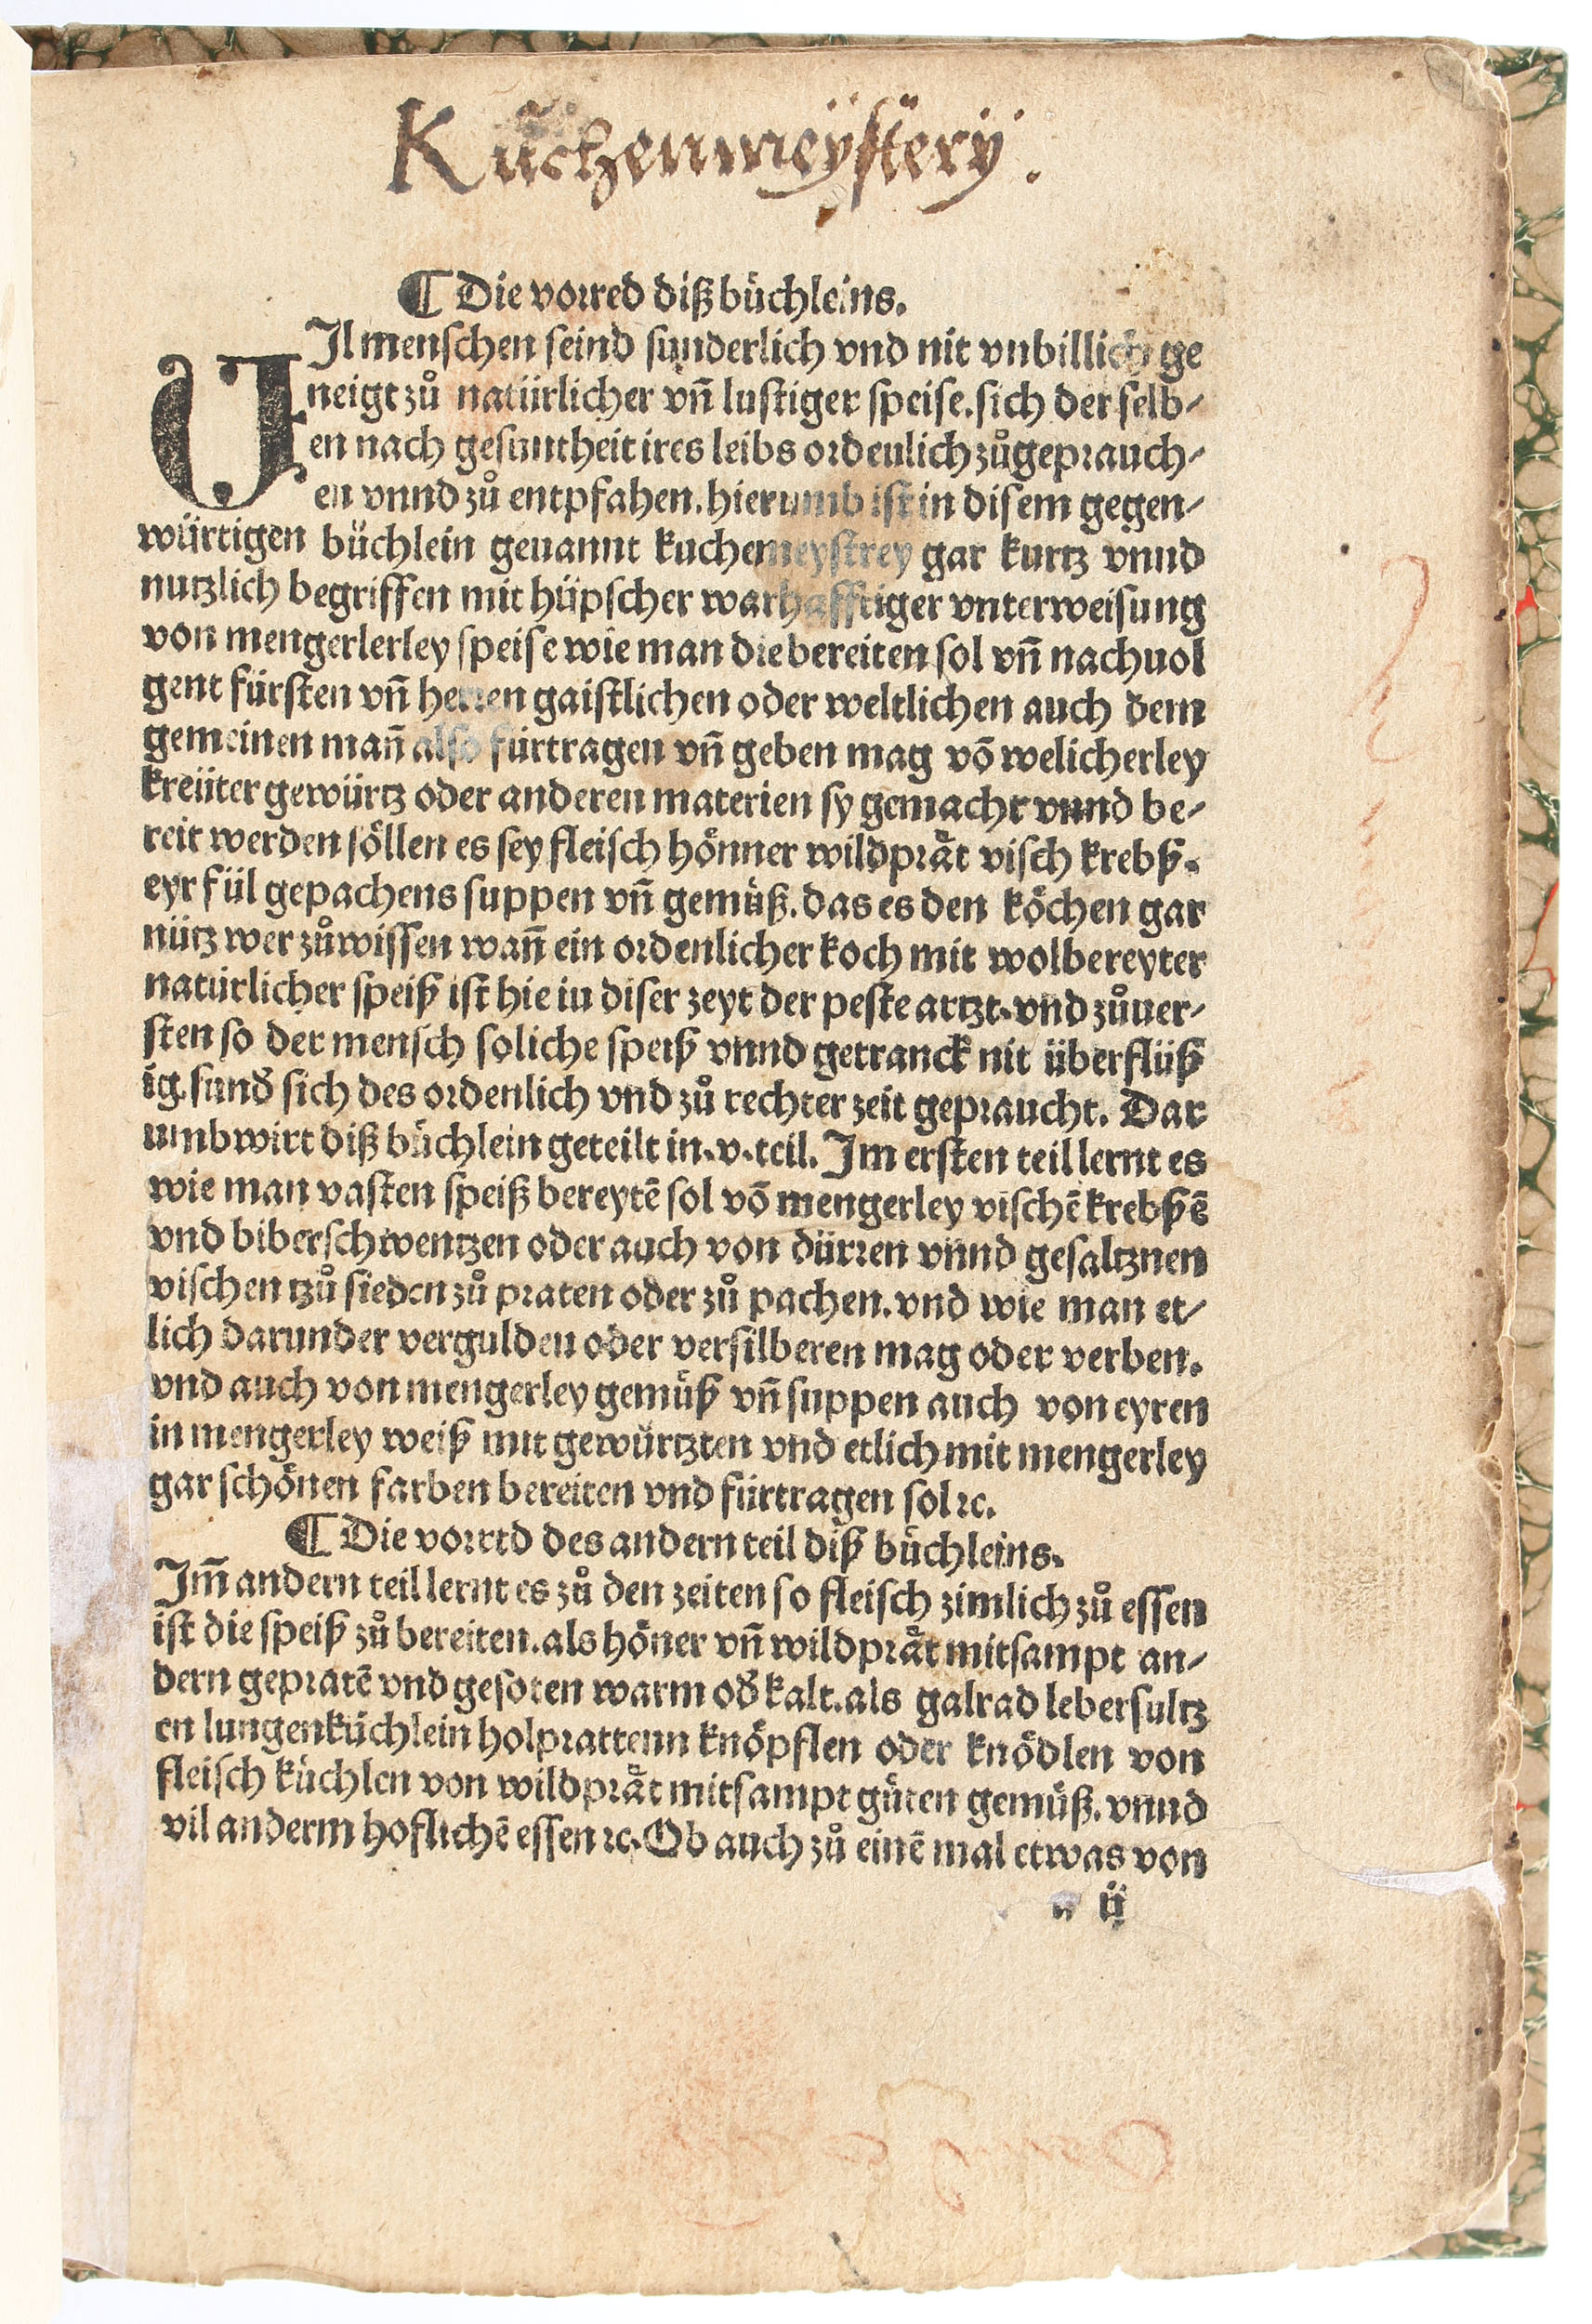 Kuchenmeÿsterÿ.
¶ Die vorred diß büchleins.
VIl menschen seind sunderlich vnd nit vnbillich ge
neigt zů natürlicher vn̄ lustiger speise. sich der selb-
en nach gesuntheit ires leibs ordeulich zůgeprauch-
en vnnd zů entpfahen. hierumb ist in disem gegen-
würtigen büchlein geuannt kuchemeystrey gar kurtz vnnd
nutzlich begriffen mit hüpscher warhafftiger vnterweisung
von mengerlerley speise wie man die bereiten sol vn̄ nachuol
gent fürsten vn̄ herren gaistlichen oder weltlichen auch dem
gemeinen man̄ also fürtragen vn̄ geben mag vō welicherley
kreüter gewürtz oder anderen materien sy gemacht vnnd be-
reit werden söllen es sey fleisch hönner wildprät visch krebß.
eyr fül gepachens suppen vn̄ gemüß. das es den köchen gar
nütz wer zůwissen wan̄ ein ordenlicher koch mit wolbereyter
natürlicher speiß ist hie iu diser zeyt der peste artzt. vnd zůuer-
sten so der mensch soliche speiß vnnd getranck nit überflüß
ig. sund̄ sich des ordenlich vnd zů rechter zeit gepraucht. Dar
umb wirt diß büchlein geteilt in. v. teil. Im ersten teil lernt es
wie man vasten speiß bereytē sol vō mengerley vischē krebßē
vnd biberschwentzen oder auch von dürren vnnd gesaltznen
vischen tzů sieden zů praten oder zů pachen. vnd wie man et-
lich darunder vergulden oder versilberen mag oder verben.
vnd auch von mengerley gemüß vn̄ suppen auch von eyren
in mengerley weiß mit gewürtzten vnd etlich mit mengerley
gar schönen farben bereiten vnd fürtragen sol ⁊c.
¶ Die vorred des andern teil diß büchleins.
Im̄ andern teil lernt es zů den zeiten so fleisch zimlich zů essen
ist die speiß zů bereiten. als höner vn̄ wildprät mitsampt an-
dern gepratē vnd gesoten warm od̄ kalt. als galrad lebersultz
en lungenküchlein holprattenn knöpflen oder knödlen von
fleisch küchlen von wildprät mitsampt güten gemüß. vnnd
vil anderm hoflichē essen ⁊c. Ob auch zů einē mal etwas von
ij